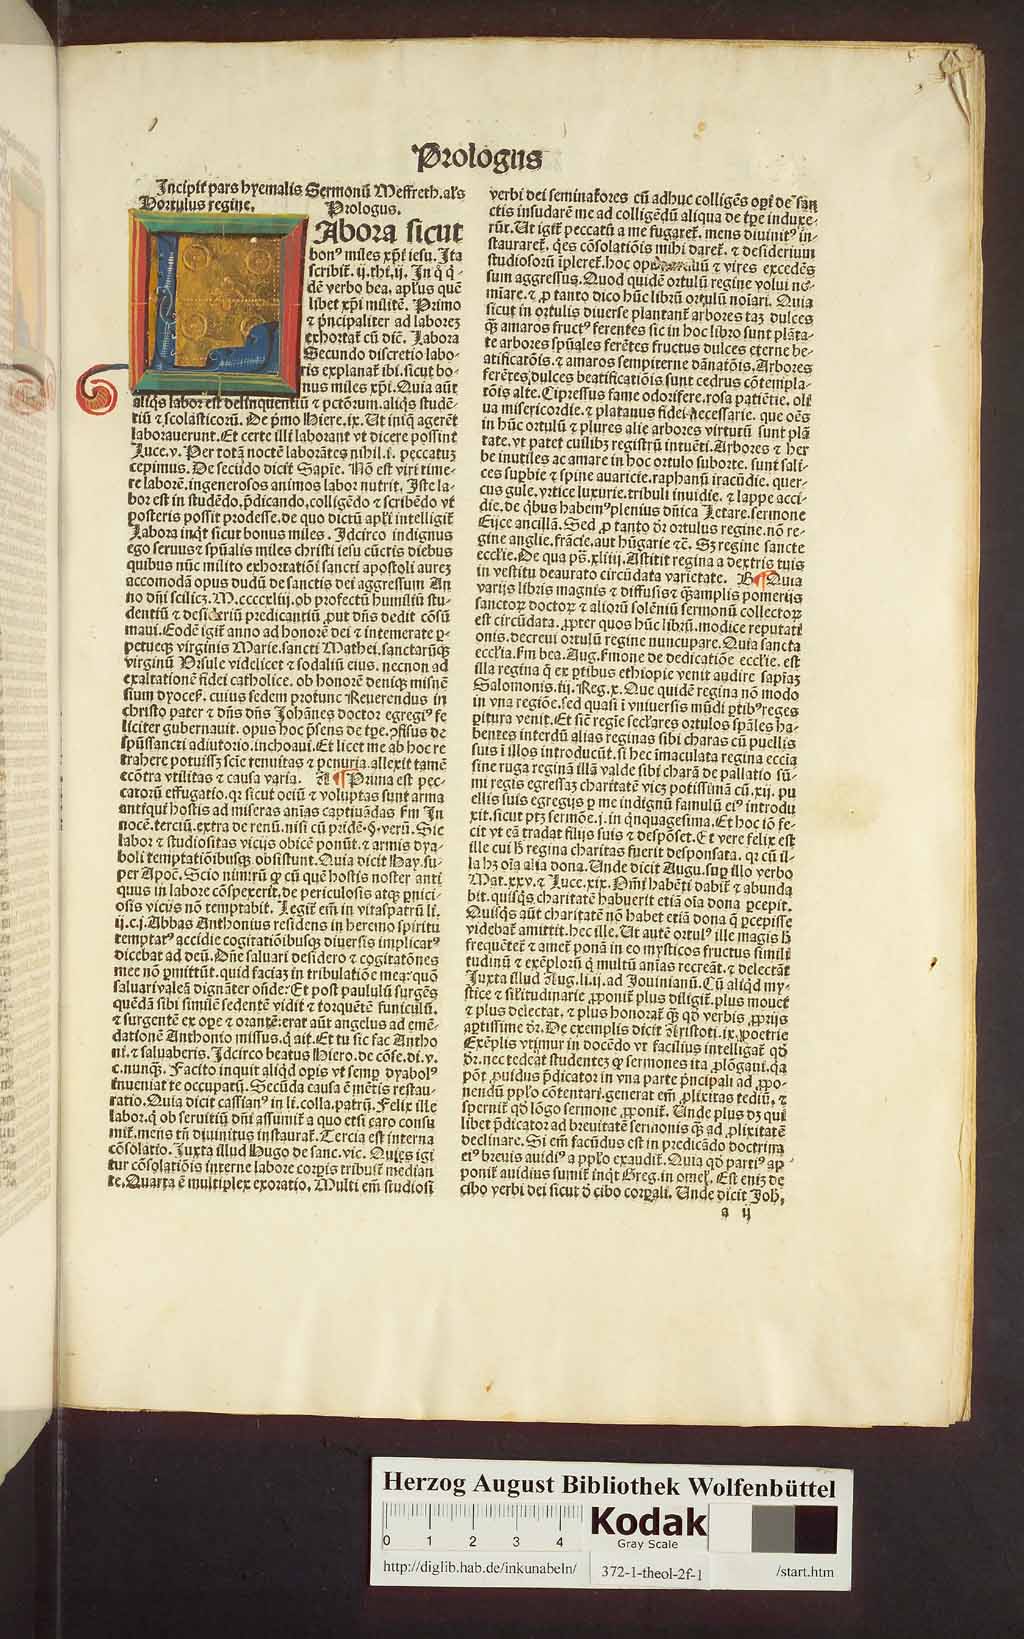 Prologus
Incipit pars hyemalis Sermonū Meffreth. als
Hortulus regine. Prologus.
Labora sicut
bonꝰ miles xp̄i iesu. Ita
scribit̄. ij. thi. ij. In q̄ q̄-
dē verbo bea. aplꝰus quē
libet xp̄i militē. Primo
⁊ p̄ncipaliter ad laboreꝫ
exhortat̄ cū dic̄. Labora
Secundo discretio labo-
ris explanat̄ ibi. sicut bo-
nus miles xp̄i. Quia aūt
aliqs labor est delinquentiū ⁊ pctōrum. aliqs studē-
tiū ⁊ scolasticorū. De p̄mo Hiere. ix. Ut iniq̄ agerēt
laborauerunt. Et certe illi laborant vt dicere possint
Luce. v. Per totā noctē laborātes nihil .i. peccatuꝫ
cepimus. De secūdo dicit Sapiē. Nō est viri time-
re laborē. ingenerosos animos labor nutrit. Iste la-
bor est in studēdo, p̄dicando, colligēdo ⁊ scribēdo vt
posteris possit prodesse. de quo dictū apl̄i intelligit̄
Labora inqt sicut bonus miles. Idcirco indignus
ego seruus ⁊ spūalis miles christi iesu cūctis diebus
quibus nūc milito exhortatiōi sancti apostoli aureꝫ
accomodā opus dudū de sanctis dei aggressum An
no dn̄i scilicꝫ. M.ccccxliij. ob profectū humiliū stu-
dentiū ⁊ desideriū predicantiū ꝓut dn̄s dedit cōsū
maui. Eodē igit̄ anno ad honorē dei ⁊ intemerate ꝑ-
petueqꝫ virginis Marie. sancti Mathei. sanctarūqꝫ
virginū Ursule videlicet ⁊ sodaliū eius. necnon ad
exaltationē fidei catholice. ob honorē deniqꝫ misnē
sium dyoceſ. cuius sedem protunc Reuerendus in
christo pater ⁊ dn̄s dn̄s Johānes doctor egregiꝰ fe
liciter gubernauit. opus hoc p̄sens de tp̄e. ꝯfisus de
spūssancti adiutorio. inchoaui. Et licet me ab hoc re
trahere potuissꝫ scie tenuitas ⁊ penuria. allexit tamē
ecōtra vtilitas ⁊ causa varia. A ¶ Prima est pec-
catorū effugatio. qꝛ sicut ociū ⁊ voluptas sunt arma
antiqui hostis ad miseras aīas captiuādas fm In
nocē. terciū. extra de renū. nisi cū pridē. §. verū. Sic
labor ⁊ studiositas vicijs obicē ponūt. ⁊ armis dya-
boli temptatiōibusqꝫ obsistunt. Quia dicit Hay. su-
per Apoc̄. Scio nimirū ꝙ cū quē hostis noster anti
quus in labore cōspexerit. de periculosis atqꝫ ꝑnici-
osis vicijs nō temptabit. Legit̄ em̄ in vitaspatrū li.
ij. c. j. Abbas Anthonius residens in heremo spiritu
temptatꝰ accidie cogitatiōibusqꝫ diuersis implicatꝰ
dicebat ad deū. Dn̄e saluari desidero ⁊ cogitatōnes
mee nō ꝑmittūt. quid faciaꝫ in tribulatiōe mea: quō
saluari valeā dignāter oñde: Et post paululū surgēs
quēdā sibi similē sedentē vidit ⁊ torquētē funiculū.
⁊ surgentē ex ope ⁊ orantē: erat aūt angelus ad emē-
dationē Anthonio missus. q̄ ait. Et tu sic fac Antho
ni. ⁊ saluaberis. Idcirco beatus Hiero. de cōse. di. v.
c. nunqꝫ. Facito inquit aliqd opis vt semp dyabolꝰ
inueniat te occupatū. Secūda causa ē mētis restau-
ratio. Quia dicit cassianꝰ in li. colla. patrū. Felix ille
labor. q̄ ob seruitiū dn̄i assumit̄ a quo etsi caro consu
mit̄. mens tn̄ diuinitus instaurat̄. Tercia est interna
cōsolatio. Iuxta illud Hugo de sanc. vic. Quies igi
tur cōsolatiōis interne labore corpis tribuit̄ median
te. Quarta ē multiplex exoratio. Multi em̄ studiosi
verbi dei seminatores cū adhuc colligēs op̄ꝰ de san
ctis insudarē me ad colligēdū aliqua de tp̄e induxe-
rūt. Ut igit̄ peccatū a me fugaret̄. mens diuinitꝰ in-
stauraret̄. qes cōsolatiōis mihi daret̄. ⁊ desiderium
studiosorū ip̄leret̄. hoc op ⁊ vires excedēs
sum aggressus. Quod quidē ortulū regine volui no-
miare. ⁊ ꝓ tanto dico hūc librū ortulū noīari. Quia
sicut in ortulis diuerse plantant̄ arbores taꝫ dulces
qꝫ amaros fructꝰ ferentes sic in hoc libro sunt plāta-
te arbores spūales ferētes fructus dulces eterne be-
atificatōis. ⁊ amaros sempiterne dānatōis. Arbores
ferētes dulces beatificatiōis sunt cedrus cōtempla-
tōis alte. Cipressus fame odorifere. rosa patiētie. oli
ua misericordie. ⁊ platanus fidei necessarie. que oēs
in hūc ortulū ⁊ plures alie arbores virtutū sunt plā
tate. vt patet cuilibꝫ registrū intuēti. Arbores ⁊ her
be inutiles ac amare in hoc ortulo suborte. sunt sali-
ces supbie ⁊ spine auaricie. raphanū iracūdie. quer-
cus gule. vrtice luxurie. tribuli inuidie. ⁊ lappe acci-
die. de qbus habemꝰ plenius dn̄ica Letare. sermone
Eijce ancillā. Sed ꝓ tanto dr̄ ortulus regine. nō re-
gine anglie. frācie. aut hūgarie ⁊c̄. Sꝫ regine sancte
eccl̄ie. De qua ps̄. xliiij. Astitit regina a dextris tuis
in vestitu deaurato circūdata varietate. B ¶ Quia
varijs libris magnis ⁊ diffusis ⁊ qꝫamplis pomerijs
sanctoꝝ doctoꝝ ⁊ alioru̅ solēniū sermonū collectoꝝ
est circūdata. ꝓpter quos hūc librū. modice reputati
onis. decreui ortulū regine nuncupare. Quia sancta
eccl̄ia. fm bea. Aug. fmone de dedicatiōe eccl̄ie. est
illa regina q̄ ex ꝑtibus ethiopie venit audire sapīaꝫ
Salomonis. iij. Reg. x. Que quidē regina nō modo
in vna regiōe. sed quasi ī vniuersis mūdi ꝑtibꝰ reges
ꝑitura venit. Et sic̄ regie sclares ortulos spāles ha-
bentes interdū alias reginas sibi charas cū puellis
suis ī illos introducūt. si hec īmaculata regina eccīa
sine ruga reginā illā valde sibi charā de pallatio sū-
mi regis egressaꝫ charitatē vicꝫ potissimā cū. xij. pu
ellis suis egregijs ꝑ me indignū famulū eiꝰ introdu
xit. sicut ptꝫ sermōe. j. in qn̄quagesima. Et hoc iō fe-
cit vt eā tradat filijs suis ⁊ despōset. Et vere felix est
ille cui h̄ regina charitas fuerit desponsata. qꝛ cū il-
la hꝫ oīa alia dona. Unde dicit Augu. sup illo verbo
Mat. xxv. ⁊ Luce. xix. Om̄i habēti dabit̄ ⁊ abunda
bit. quisqs charitatē habuerit etiā oīa dona ꝑcepit.
Quisqs aūt charitatē nō habet etiā dona q̄ ꝑcepisse
videbat̄ amittit. hec ille. Ut autē ortulꝰ ille magis h̄
frequētet̄ ⁊ amet̄ ponā in eo mysticos fructus simili
tudinū ⁊ exēplorū q̄ multū aīas recreāt. ⁊ delectāt
Iuxta illud Aug. li. ij. ad Jouinianū. Cū aliqd my-
stice ⁊ sīlitudinarie ꝓponit̄ plus diligit̄. plus mouet
⁊ plus delectat. ⁊ plus honorat̄ qꝫ qd̄ verbis ꝓprijs
aptissime dr̄. De exemplis dicit Aristoti. ix. poetrie
Exēplis vtimur in docēdo vt facilius intelligat̄ qd̄
dr̄. nec tedeat studenteꝫ ꝙ sermones ita ꝓlōgaui. qa
pōt ꝓuidus p̄dicator in vna parte p̄ncipali ad ꝓpo-
nendū pplo cōtentari. generat em̄ ꝓlixitas tediū. ⁊
spernit̄ qd̄ lōgo sermone ꝓponit̄. Unde plus dꝫ qui
libet p̄dicator ad breuitatē sermonis qꝫ ad ꝓlixitatē
declinare. Si em̄ facūdus est in predicādo doctrina
eiꝰ breuis auidiꝰ a pplo exaudit̄. Quia qd̄ partiꝰ ap-
ponit̄ auidius sumit̄ inqt Greg. in omel̄. Est enīꝫ de
cibo verbi dei sicut ⁊ cibo corpali. Unde dicit Joh.
a ij
Herzog August Bibliothek Wolfenbüttel
0 1 2 3 4
Kodak
Gray Scale
http://diglib.hab.de/inkunabeln/ 372-1-theol-2f-1 /start.htm